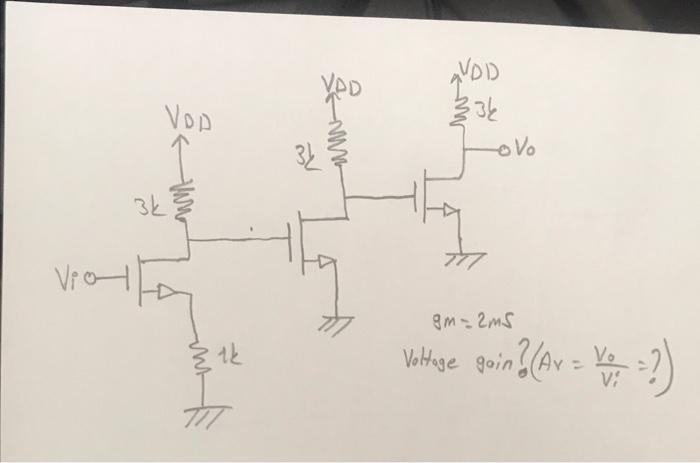 VDD
3k
Vi
1k
VDD
3k
VDD
3k
Vo
gm = 2mS
Voltage gain? (Av = Vo/Vi = ?)